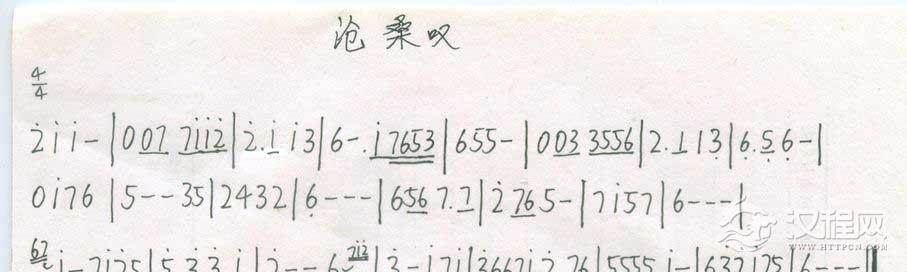 沧桑叹
4/4
2̇ i i - | 0 0 7 7 i i 2̇ | 2̇. i i 3 | 6 - . i 7 6 5 3 | 6 5 5 - | 0 0 3 3 5 5 6 | 2 . 1 1 3 | 6 . 5 6 - |
0 i 7 6 | 5 - - 3 5 | 2 4 3 2 | 6 - - - | 6 5 6 7 . 7 | 2̇ 7 6 5 - | 7 i 5 7 | 6 - - - |
汉程网
www.httpcn.com